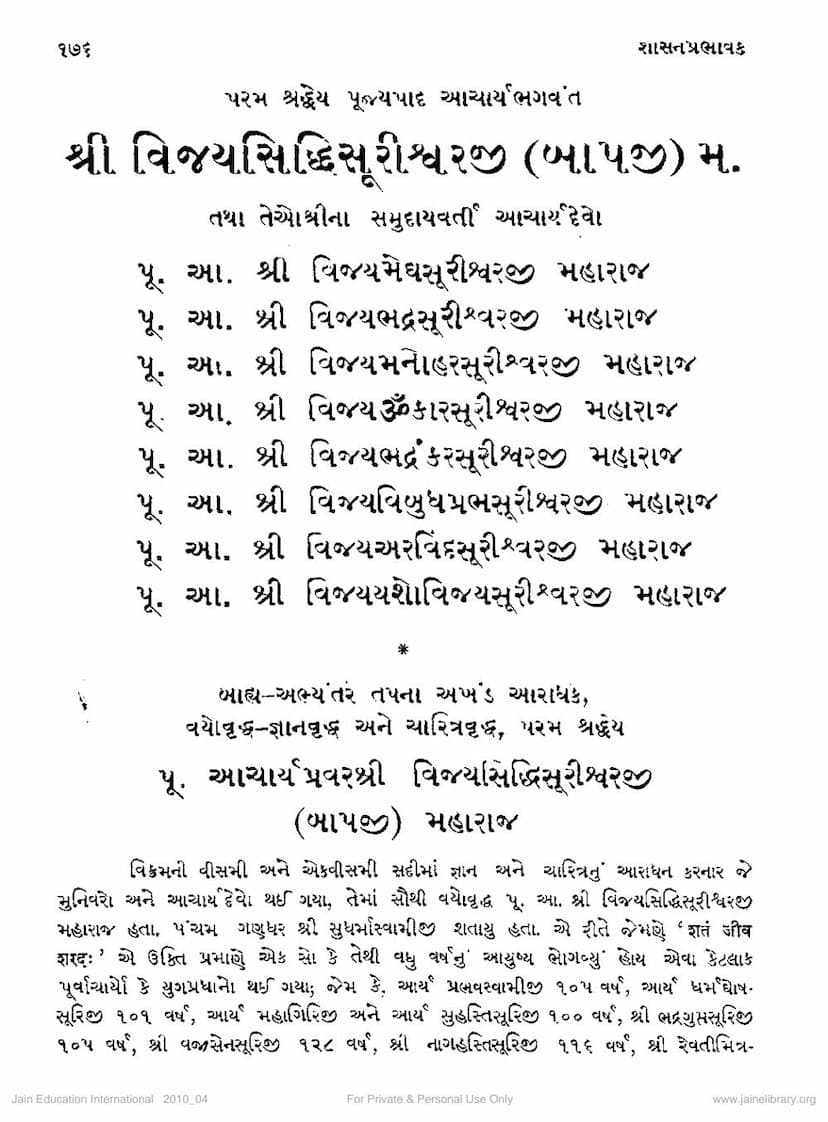 ૧૭૬ શાસનપ્રભાવક
પરમ શ્રદ્ધેય પૂજ્યપાદ આચાર્યભગવંત
શ્રી વિજયસિદ્ધિસૂરીશ્વરજી (બાપજી) મ.
તથા તેઓશ્રીના સમુદાયવર્તી આચાર્યદેવો
પૂ. આ. શ્રી વિજયમેઘસૂરીશ્વરજી મહારાજ
પૂ. આ. શ્રી વિજયભદ્રસૂરીશ્વરજી મહારાજ
પૂ. આ. શ્રી વિજયમનોહરસૂરીશ્વરજી મહારાજ
પૂ. આ. શ્રી વિજયૐકારસૂરીશ્વરજી મહારાજ
પૂ. આ. શ્રી વિજયભદ્રંકરસૂરીશ્વરજી મહારાજ
પૂ. આ. શ્રી વિજયવિબુધપ્રભસૂરીશ્વરજી મહારાજ
પૂ. આ. શ્રી વિજયઅરવિંદસૂરીશ્વરજી મહારાજ
પૂ. આ. શ્રી વિજયયશોવિજયસૂરીશ્વરજી મહારાજ
*
બાહ્ય–અભ્યંતર તપના અખંડ આરાધક,
વયોવૃદ્ધ–જ્ઞાનવૃદ્ધ અને ચારિત્રવૃદ્ધ, પરમ શ્રદ્ધેય
પૂ. આચાર્યપ્રવરશ્રી વિજયસિદ્ધિસૂરીશ્વરજી
(બાપજી) મહારાજ
વિક્રમની વીસમી અને એકવીસમી સદીમાં જ્ઞાન અને ચારિત્રનું આરાધન કરનાર જે
મુનિવરો અને આચાર્યદેવો થઈ ગયા, તેમાં સૌથી વયોવૃદ્ધ પૂ. આ. શ્રી વિજયસિદ્ધિસૂરીશ્વરજી
મહારાજ હતા. પંચમ ગણધર શ્રી સુધર્માસ્વામીજી શતાયુ હતા. એ રીતે જેમણે ‘ શતં जीव
शरदः ’ એ ઉક્તિ પ્રમાણે એક સો કે તેથી વધુ વર્ષનું આયુષ્ય ભોગવ્યું હોય એવા કેટલાક
પૂર્વાચાર્યો કે યુગપ્રધાનો થઈ ગયા; જેમ કે, આર્ય પ્રભવસ્વામીજી ૧૦૫ વર્ષ, આર્ય ધર્મઘોષ-
સૂરિજી ૧૦૧ વર્ષ, આર્ય મહાગિરિજી અને આર્ય સુહસ્તિસૂરિજી ૧૦૦ વર્ષ, શ્રી ભદ્રગુપ્તસૂરિજી
૧૦૫ વર્ષ, શ્રી વજ્રસેનસૂરિજી ૧૨૮ વર્ષ, શ્રી નાગહસ્તિસૂરિજી ૧૧૬ વર્ષ, શ્રી રેવતીમિત્ર-
Jain Education International 2010_04 For Private & Personal Use Only www.jainelibrary.org